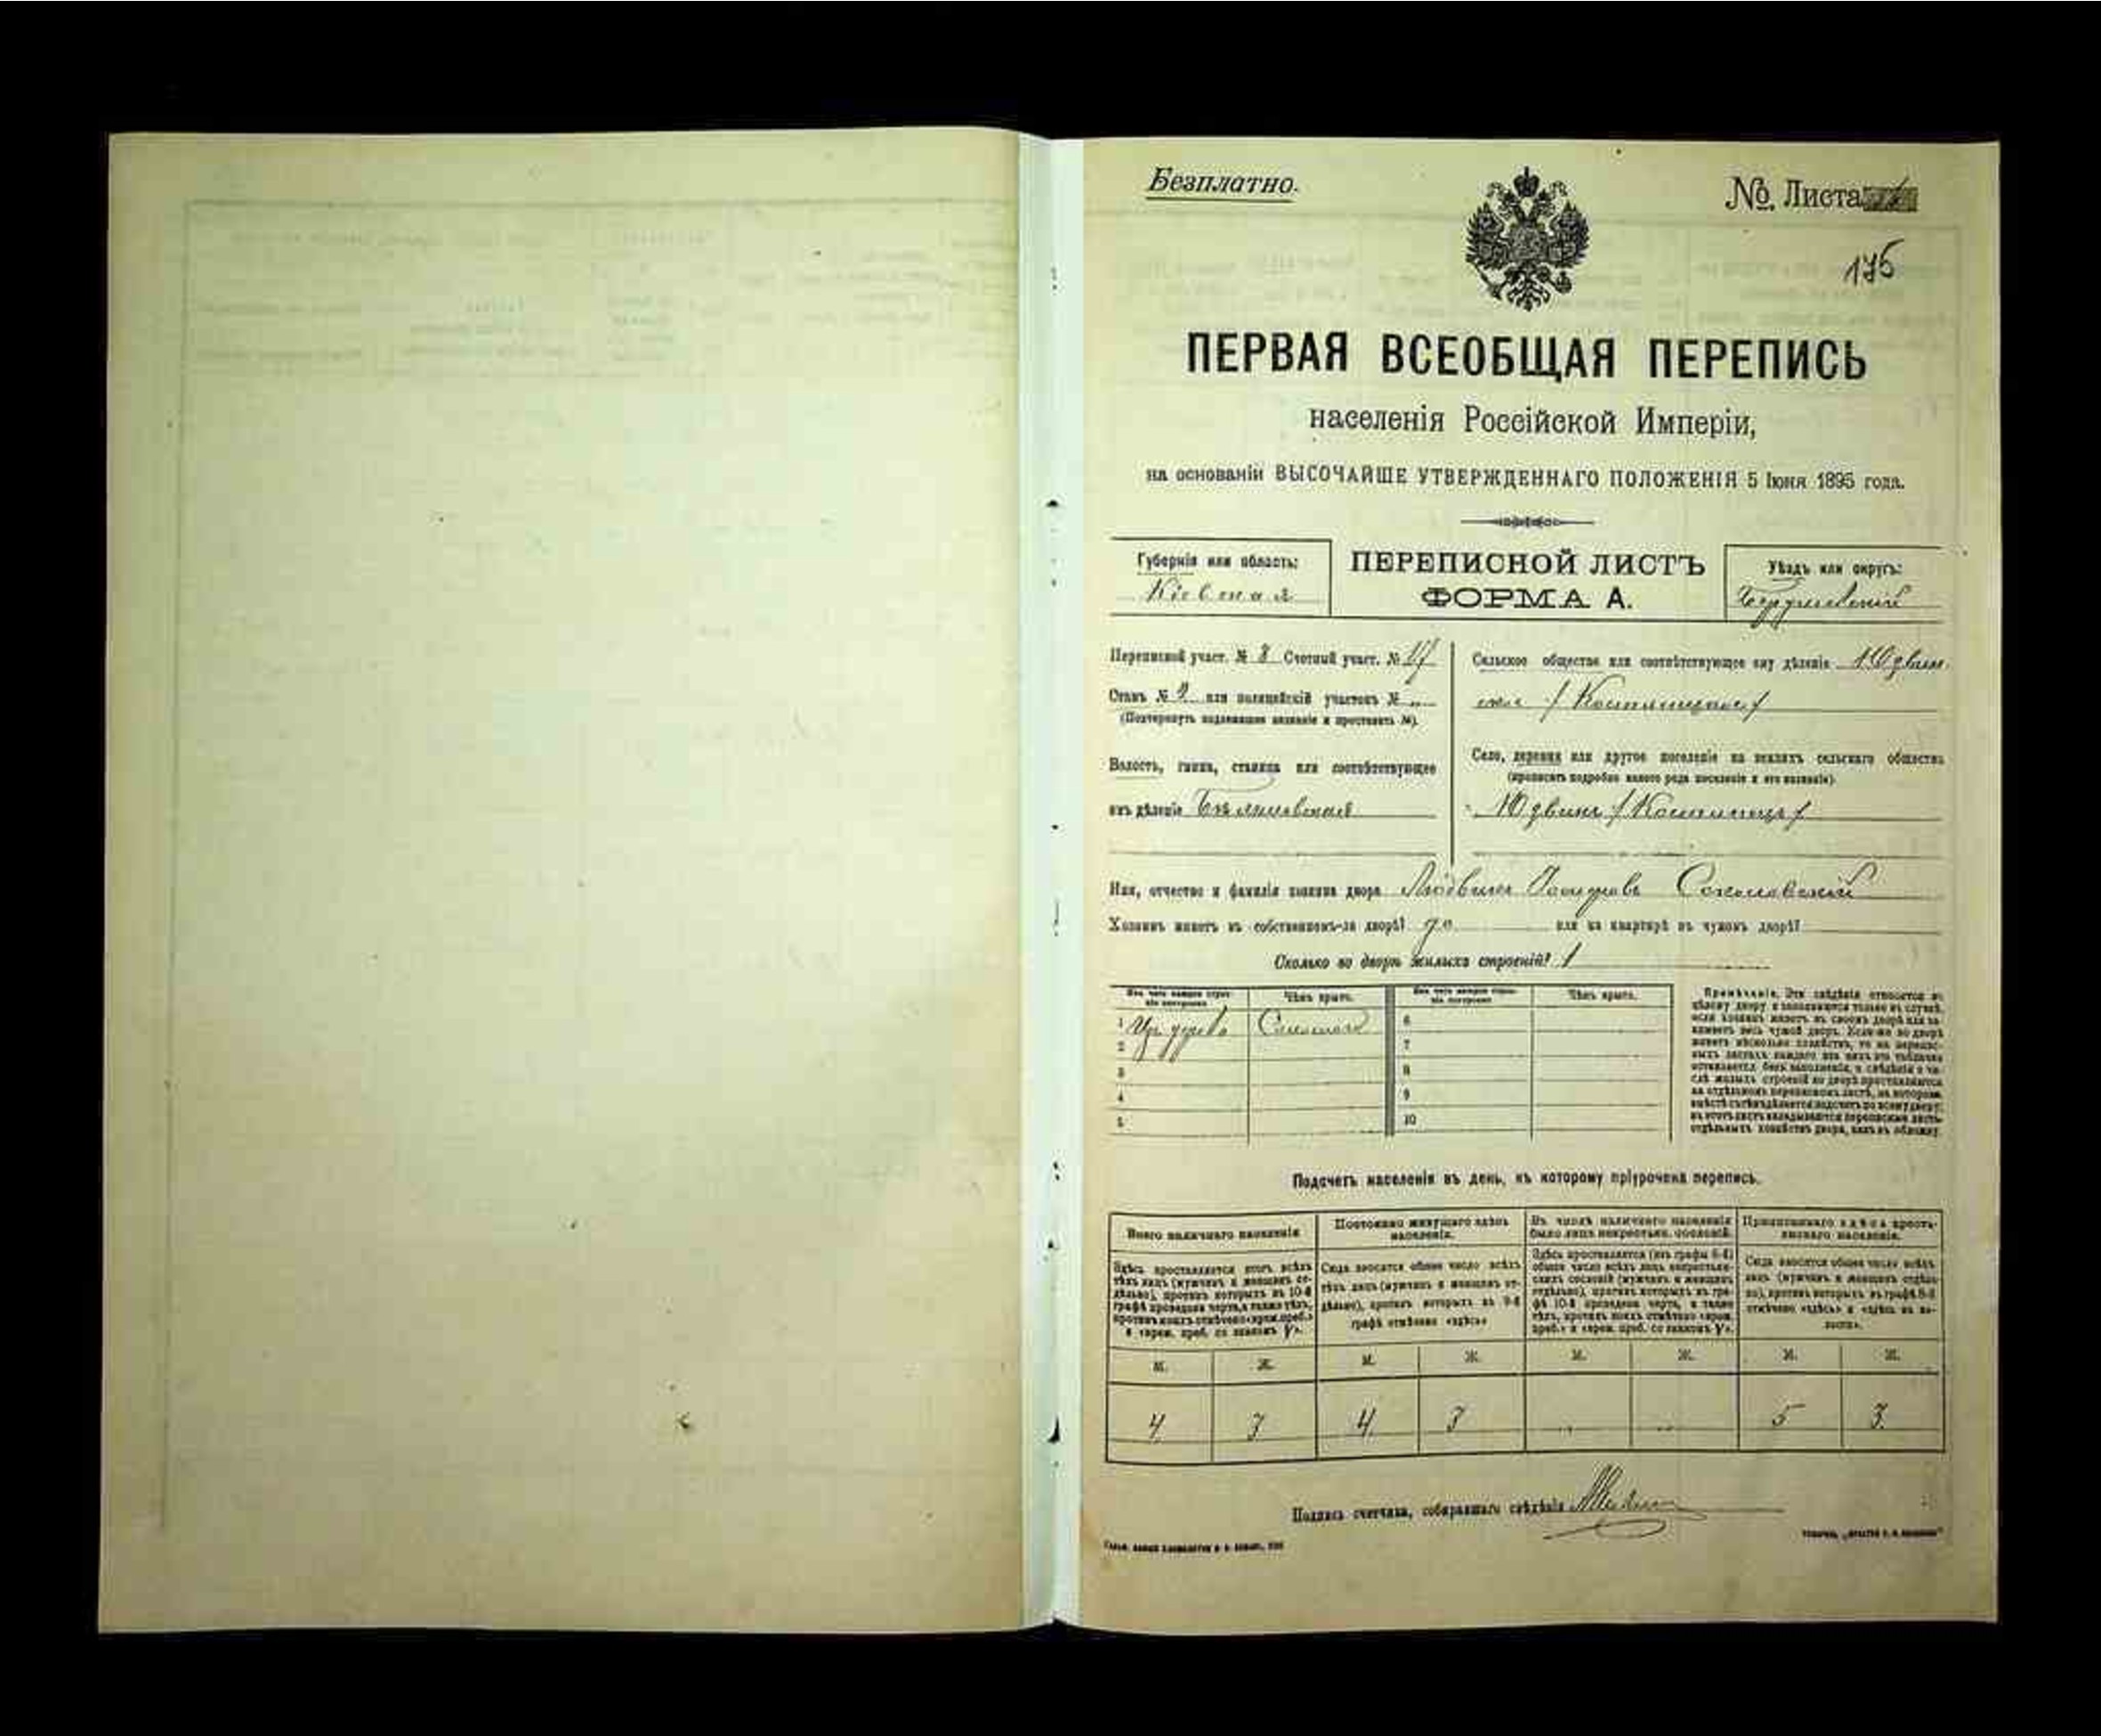 Безплатно.
№ Листа
175
ПЕРВАЯ ВСЕОБЩАЯ ПЕРЕПИСЬ
населенія Россійской Имперіи,
на основаніи ВЫСОЧАЙШЕ УТВЕРЖДЕННАГО ПОЛОЖЕНІЯ 5 Іюня 1895 года.
Губернія или область:
Кіевская
ПЕРЕПИСНОЙ ЛИСТЪ
ФОРМА А.
Уѣздъ или округъ:
Бердичевскій
Переписной участ. № 8 Счетный участ. № 17
Станъ № 2 или полицейскій участокъ № „
(Подчеркнуть надлежащее названіе и проставить №).
Волость, гмина, станица или соотвѣтствующее
имъ дѣленіе Бѣлиловская
Сельское общество или соотвѣтствующее ему дѣленіе Юдвин
ское
Село, деревня или другое поселеніе на земляхъ сельскаго общества
(прописать подробно какого рода поселеніе и его названіе).
Юдвинъ
Имя, отчество и фамилія хозяина двора Людвигъ Соколовскій
Хозяинъ живетъ въ собственномъ-ли дворѣ? да или на квартирѣ въ чужомъ дворѣ?
Сколько во дворѣ жилыхъ строеній? 1
Изъ чего каждое строе-
ніе построено
Чѣмъ крыто.
Изъ чего каждое строе-
ніе построено
Чѣмъ крыто.
1 Изъ дерева Соломою 6
2 7
3 8
4 9
5 10
Примѣчаніе. Эти свѣдѣнія относятся къ
цѣлому двору и заполняются только въ случаѣ,
если хозяинъ живетъ въ своемъ дворѣ или за-
нимаетъ весь чужой дворъ. Если-же во дворѣ
живетъ нѣсколько хозяйствъ, то на перепис-
ныхъ листахъ каждаго изъ нихъ эта табличка
оставляется безъ заполненія, а свѣдѣнія о чи-
слѣ жилыхъ строеній во дворѣ проставляются
на отдѣльномъ переписномъ листѣ, на которомъ
вмѣстѣ съ тѣмъ дѣлается подсчетъ по всему двору;
въ этотъ листъ вкладываются переписные листы
отдѣльныхъ хозяйствъ двора, какъ въ обложку.
Подсчетъ населенія въ день, къ которому пріурочена перепись.
Всего наличнаго населенія
Постоянно живущаго здѣсь
населенія.
Въ числѣ наличнаго населенія
было лицъ некрестьянс. сословій.
Приписаннаго здѣсь кресть-
янскаго населенія.
Здѣсь проставляется итогъ всѣхъ
тѣхъ лицъ (мужчинъ и женщинъ от-
дѣльно), противъ которыхъ въ 10-й
графѣ проведена черта, а также тѣхъ,
противъ коихъ отмѣчено «врем. преб.»
и «врем. преб. со знакомъ V».
Сюда вносится общее число всѣхъ
тѣхъ лицъ (мужчинъ и женщинъ от-
дѣльно), противъ которыхъ въ 9-й
графѣ отмѣчено «здѣсь»
Здѣсь проставляется (изъ графы 6-й)
общее число всѣхъ лицъ некрестьян-
скихъ сословій (мужчинъ и женщинъ
отдѣльно), противъ которыхъ въ гра-
фѣ 10-й проведена черта, а также
тѣхъ, противъ коихъ отмѣчено «врем.
преб.» и «врем. преб. со знакомъ V».
Сюда вносится общее число всѣхъ
лицъ (мужчинъ и женщинъ отдѣль-
но), противъ которыхъ въ графѣ 8-й
отмѣчено «здѣсь» и «здѣсь въ во-
лости».
М. Ж. М. Ж. М. Ж. М. Ж.
4 3 4 3 „ „ 5 3
Подпись счетчика, собиравшаго свѣдѣнія